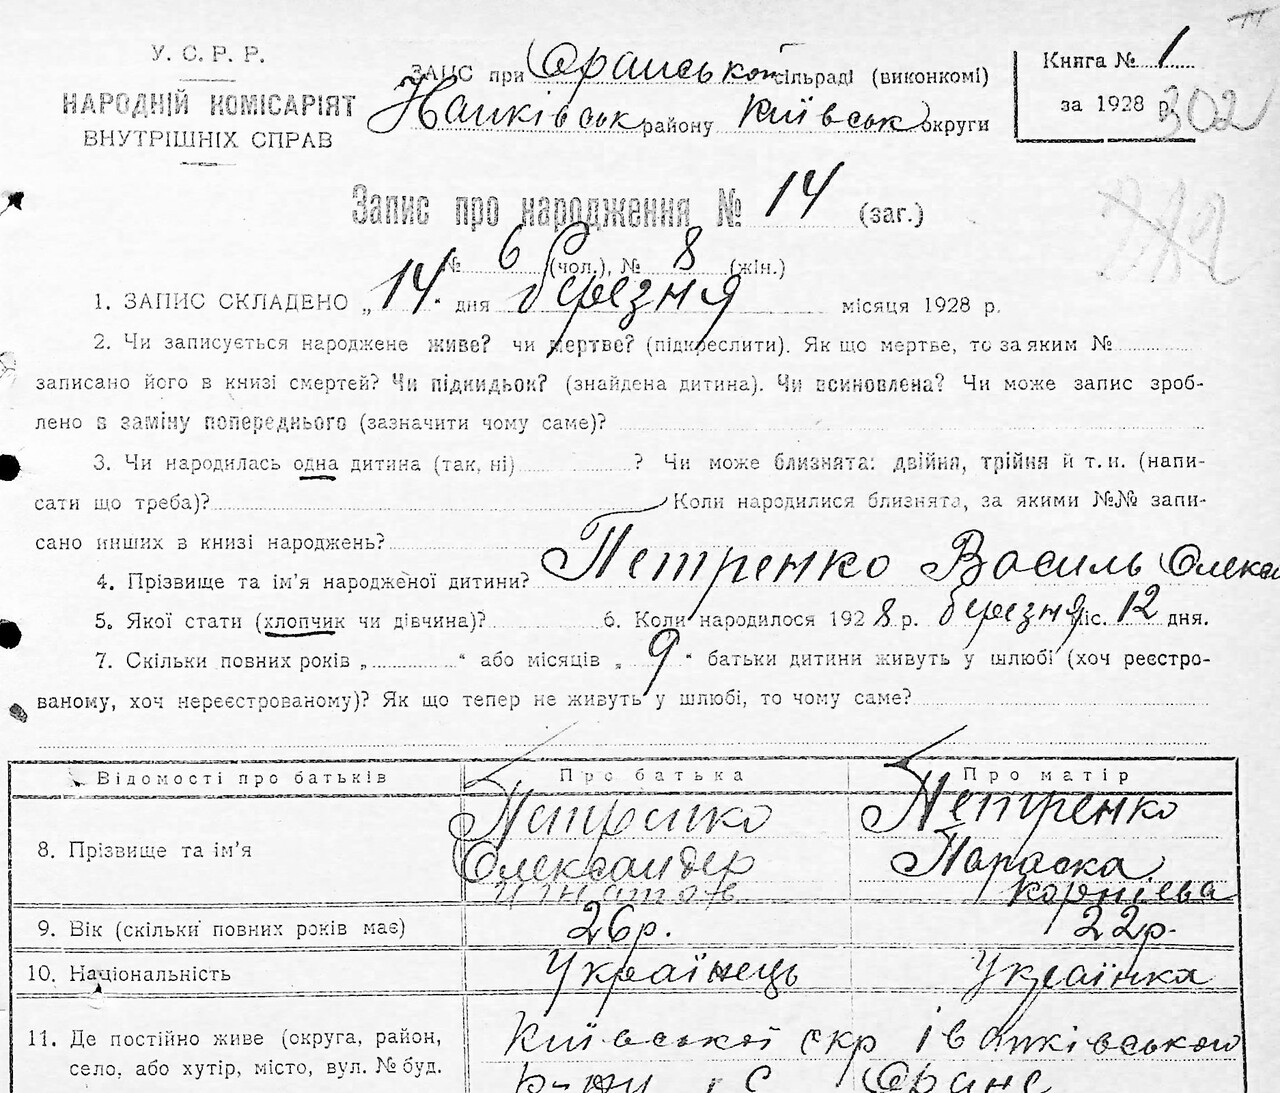 У. С. Р. Р.
НАРОДНІЙ КОМІСАРІЯТ
ВНУТРІШНІХ СПРАВ
ЗАПИС при Оранської сільраді (виконкомі)
району Київськ округи
Книга № 1
за 1928 р.
302
Запис про народження № 14 (заг.)
№ 6 (чол.), № 8 (жін.)
1. ЗАПИС СКЛАДЕНО „ 14. дня березня місяця 1928 р.
2. Чи записується народжене живе? чи мертве? (підкреслити). Як що мертве, то за яким №
записано його в книзі смертей? Чи підкидьок? (знайдена дитина). Чи всиновлена? Чи може запис зроб-
лено в заміну попереднього (зазначити чому саме)?
3. Чи народилась одна дитина (так, ні) ? Чи може близнята: двійня, трійня й т. и. (напи-
сати що треба)? Коли народилися близнята, за якими №№ запи-
сано инших в книзі народжень?
4. Прізвище та ім'я народженої дитини? Петренко Василь Олекса
5. Якої стати (хлопчик чи дівчина)? 6. Коли народилося 1928 р. березня міс. 12 дня.
7. Скільки повних років „ “ або місяців „ 9 “ батьки дитини живуть у шлюбі (хоч реєстро-
ваному, хоч нереєстрованому)? Як що тепер не живуть у шлюбі, то чому саме?
Відомості про батьків Про батька Про матір
8. Прізвище та ім'я
Петренко
Олександер
Петренко
Параска
Корнієва
9. Вік (скільки повних років має) 26р. 22р.
10. Національність Українець Українка
11. Де постійно живе (округа, район,
село, або хутір, місто, вул. № буд.
Київської окр Іванківського
р-ну с Оране